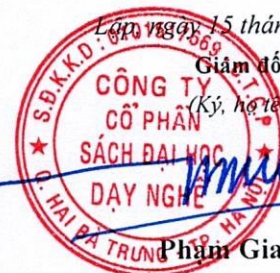 Lập, ngày 15 thán
Giám đố
(Ký, họ tê
S.Đ.K.K.D
C.T.C.P
CÔNG TY
CỔ PHẦN
SÁCH ĐẠI HỌC
DẠY NGHỀ
Q. HAI BÀ TRƯNG - TP. HÀ NỘI
Phạm Gia